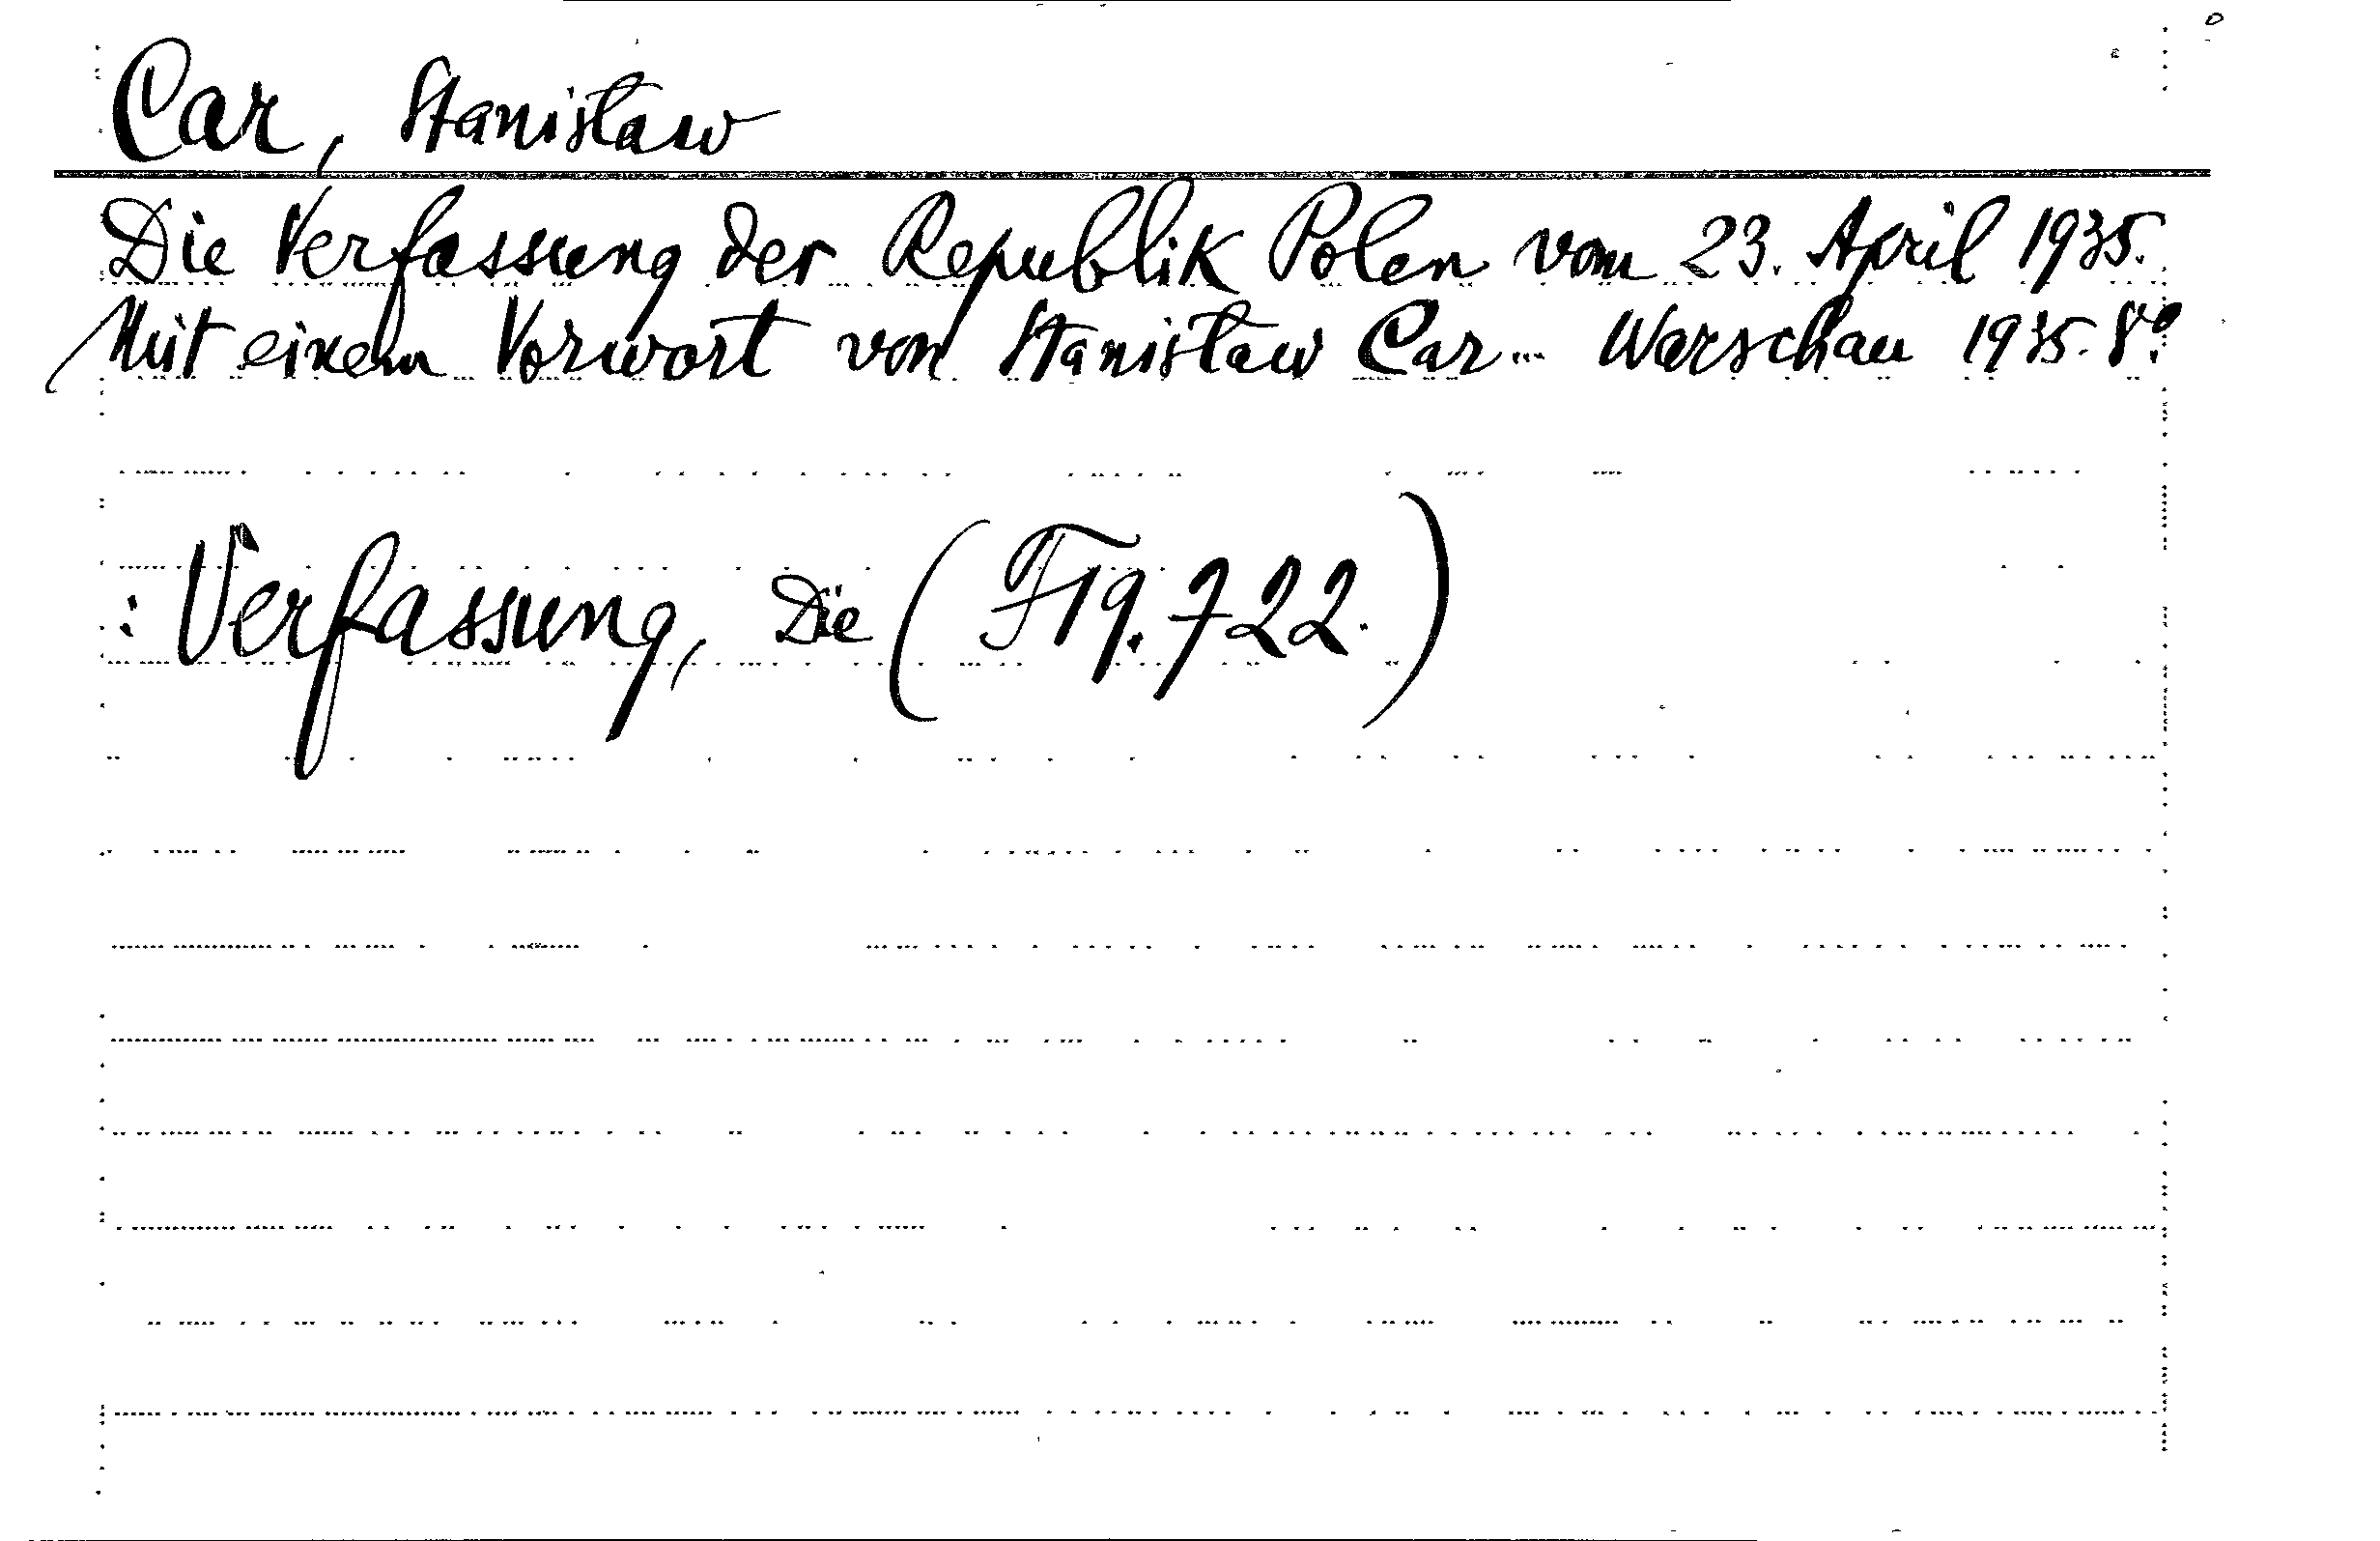 Car, Stanisław
Die Verfassung der Republik Polen vom 23. April 1935.
Mit einem Vorwort von Stanisław Car... Warschau 1935. 8°.
: Verfassung, Die (F19.722.)